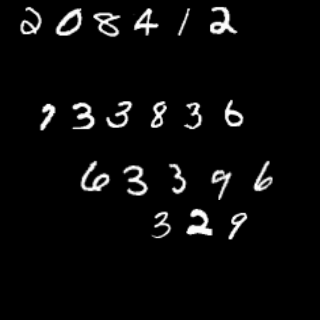 208412
733836
63396
329